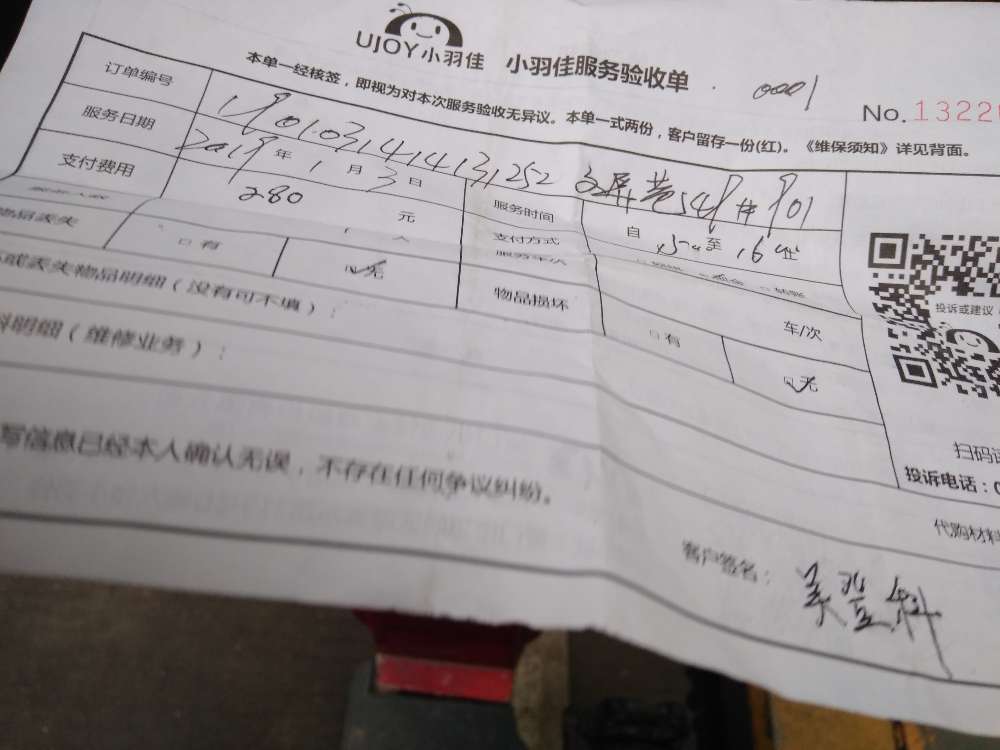 UJOY小羽佳 小羽佳服务验收单
0001
No. 1322
本单一经核签，即视为对本次服务验收无异议。本单一式两份，客户留存一份(红)。《维保须知》详见背面。
订单编号 1901031414131252
服务日期 2019 年 1 月 3 日 服务时间 自 至 16
支付费用 280 元 支付方式
人
物品丢失 □有 无 物品损坏 □有 无
车/次
或丢失物品明细（没有可不填）：
料明细（维修业务）：
写信息已经本人确认无误，不存在任何争议纠纷。
投诉或建议
扫码
投诉电话：0
代购材料
客户签名：